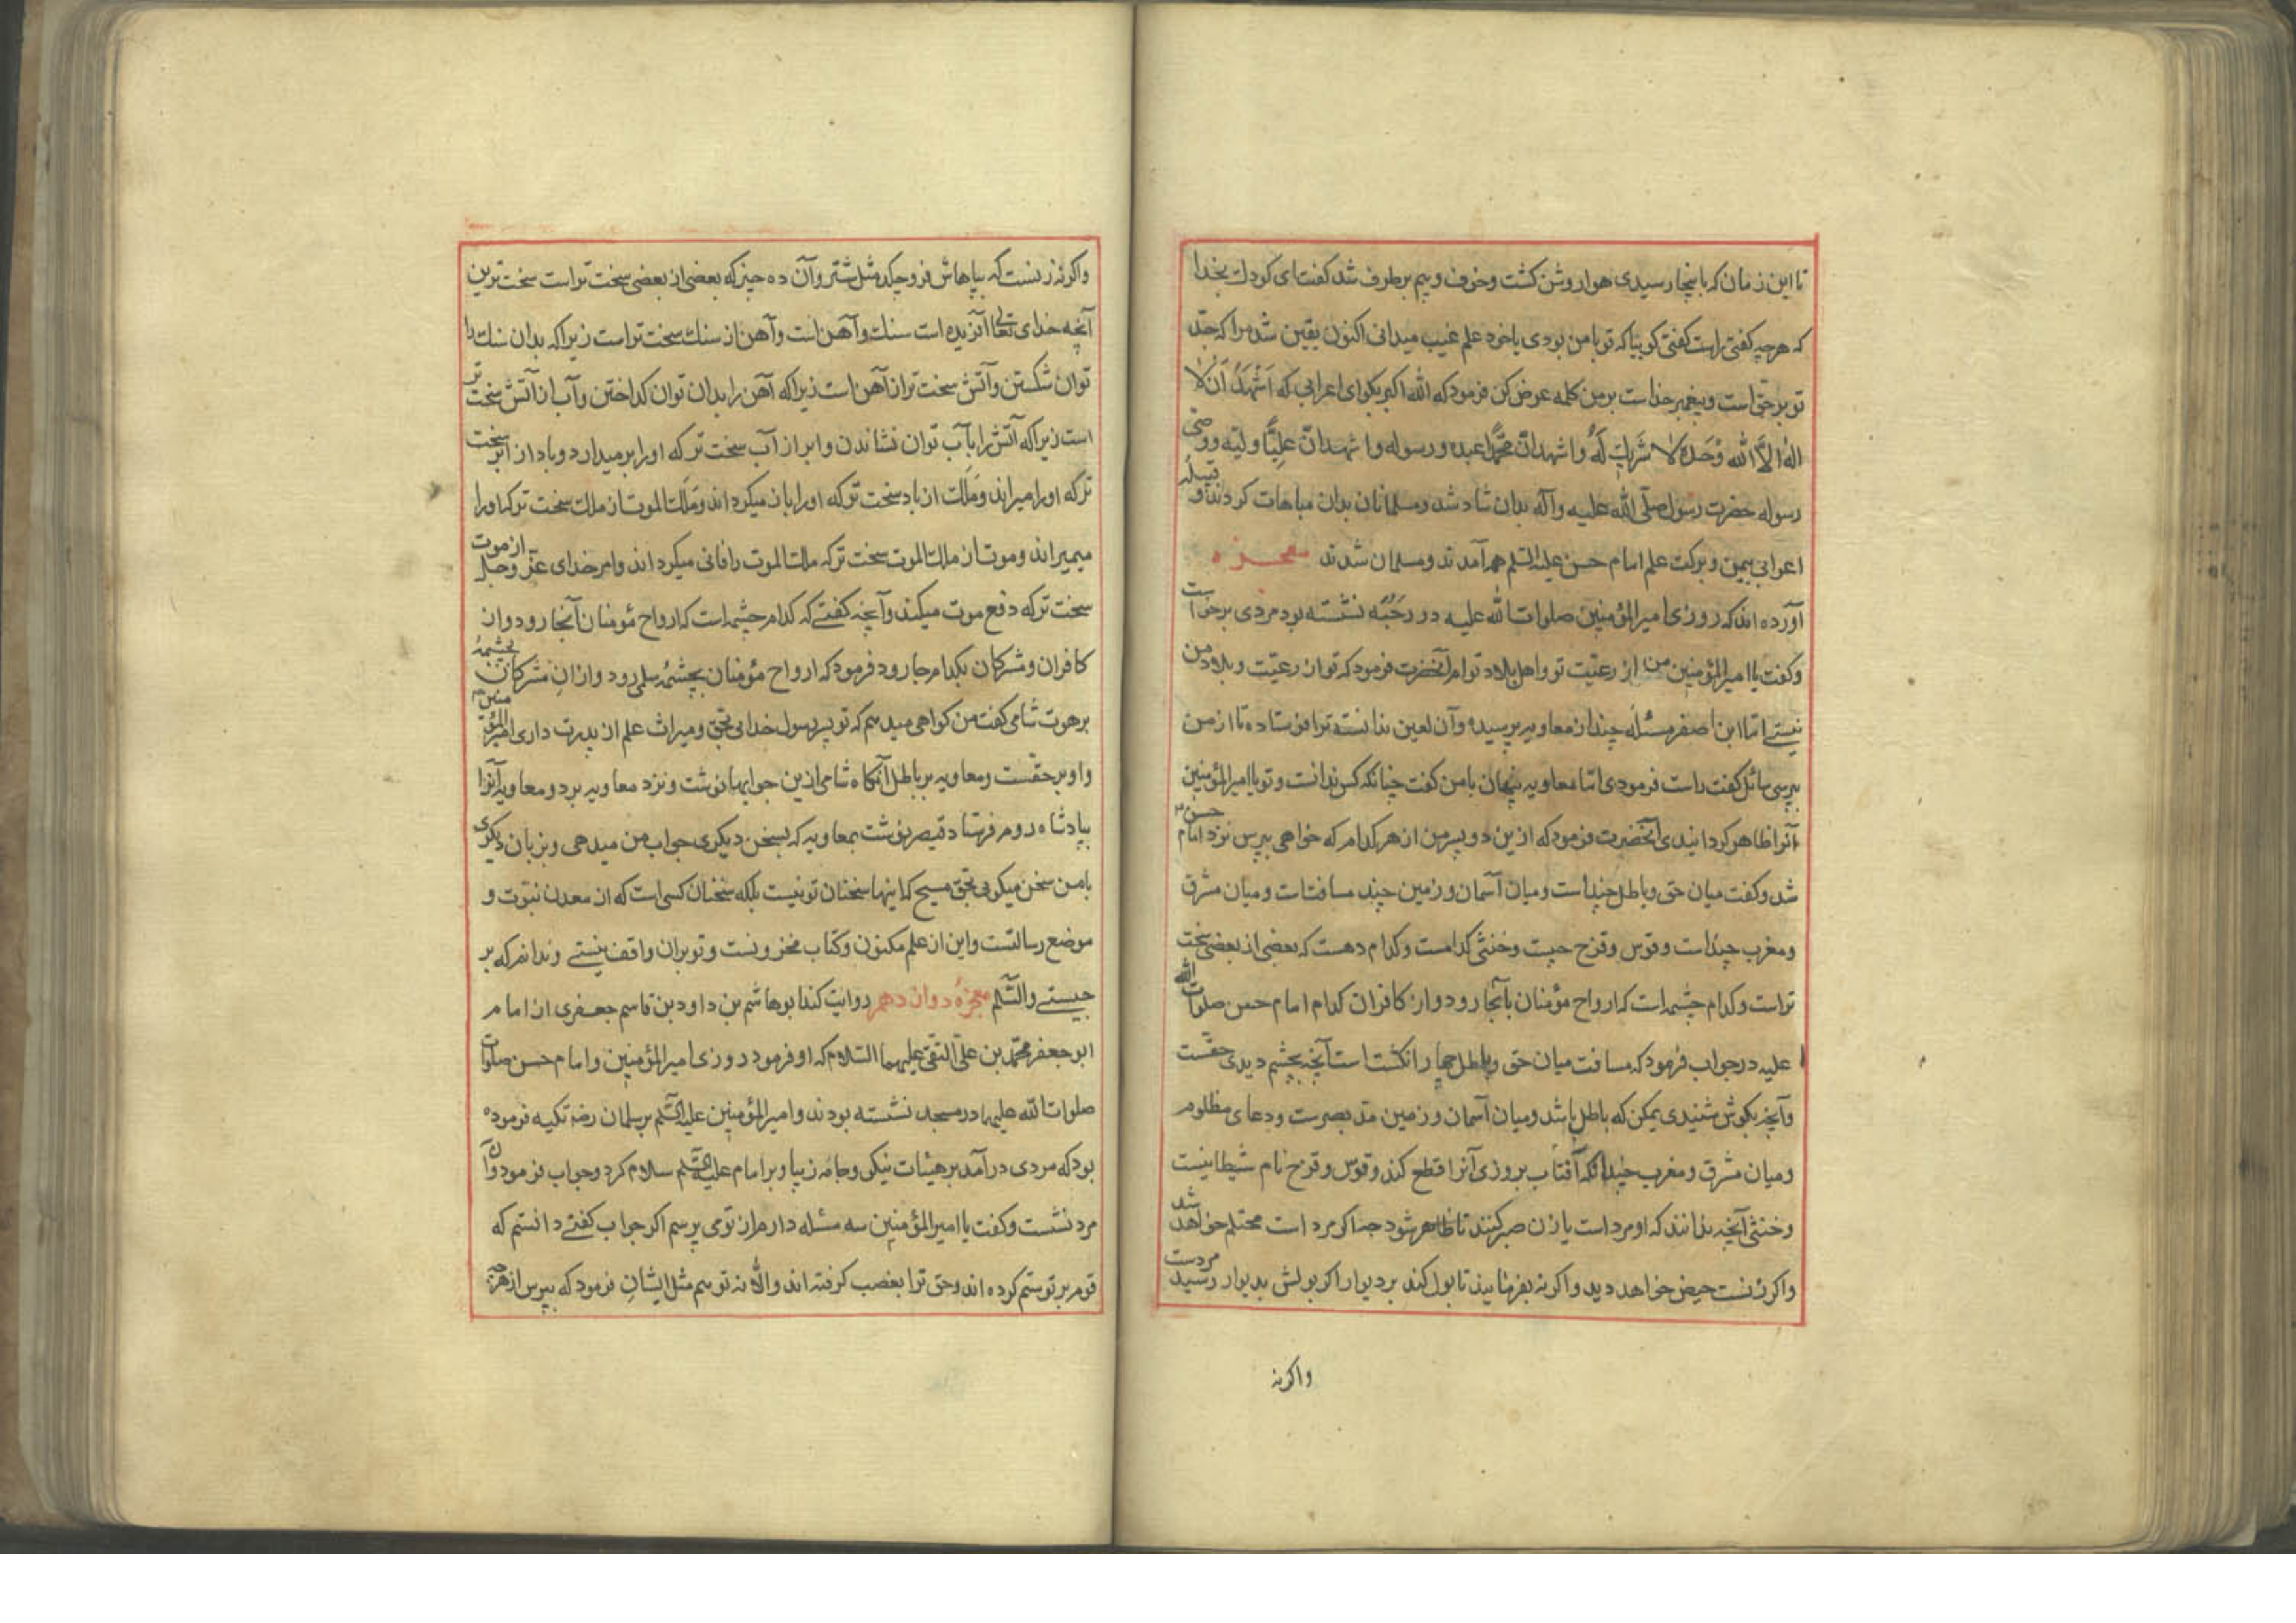 تا این زمان که باینجا رسیدی هوا روشن کشت وخوف وبیم برطرف شد کفت ای کودک بخدا
که هرچه کفتی راست کفتی کوییا که تو با من بودی یا خود علم غیب میدانی اکنون یقین شد مرا که جدّ
تو برحق است وپیغمبر خداست بر من کلمه عرض کن فرمود که الله اکبر بکو ای اعرابی که اَشْهَدُ اَنْ لا
الٰه الاّ الله وَحْدَهُ لا شَریكَ لَهُ واشهد انّ محمّدًا عبده ورسوله واشهد انّ علیًّا ولیّه ووصّی
رسوله حضرت رسول صلّی الله علیه وآله بدان شاد شد ومسلمانان بدان مباهات کردند و قبیلهٔ
اعرابی بیمن وبرکت علم امام حسن علیه السّلم همه آمدند ومسلمان شدند معجـــزه
آورده اند که روزی امیرالمؤمنین صلوات الله علیه در رحْبَه نشسته بود مردی برخواست
وکفت یا امیرالمؤمنین من از رعیّت تو واهل بلاد توام آنحضرت فرمود که تو از رعیّت وبلاد من
نیستی امّا ابن اصفر مسئلهٔ چند از معاویه پرسیده وآن لعین ندانسته ترا فرستاده تا از من
بپرسی سائل کفت راست فرمودی امّا معاویه پنهان با من کفت چنانکه کس ندانست وتو یا امیرالمؤمنین
آنرا ظاهر کردانیدی آنحضرت فرمود که ازین دو پسر من از هر کدام که خواهی بپرس نزد امام حسن
شد وکفت میان حق وباطل چنداست ومیان آسمان وزمین چند مسافتست ومیان مشرق
ومغرب چنداست وقوس وقزح چیست وخنثی کدامست وکدام دهست که بعضی از بعضی سخت
تراست وکدام چشمه است که ارواح مؤمنان بآنجا رود واز کافران کدام امام حسن صلوات الله
علیه در جواب فرمود که مسافت میان حق وباطل چهار انکشت است آنچه بچشم دیدی حقست
وآنچه بکوش شنیدی یمکن که باطل باشد ومیان آسمان وزمین مدّ بصرست ودعای مظلوم
ومیان مشرق ومغرب چندانکه آفتاب بروزی آنرا قطع کند وقوس وقزح نام شیطانیست
وخنثی آنچه ندانند که او مرد است یا زن صبر کنند تا ظاهر شود جه اکر مرد است محتلم خواهد شد
واکر زنست حیض خواهد دید واکرنه بفرمایند تا بول کند بر دیوار اکر بولش بدیوار رسید مردست
واکرنه
واکرنه زنست که بپاهاش فروچکد مثل شتر وآن ده چیز که بعضی از بعضی سخت تر است سخت ترین
آنچه خدای تعالی آفریده است سنك وآهن است وآهن از سنك سخت تر است زیرا که بدان سنك را
توان شکستن وآتش سخت تر از آهن است زیرا که آهن را بدان توان کداختن وآب از آتش سخت تر
است زیرا که آتش را بآب توان نشاندن وابر از آب سخت تر که او را برمیدارد وباد از ابر سخت
تر که او را میراند ومَلَك از باد سخت تر که او را باز میکرداند ومَلَك الموت از ملك سخت تر که او را
میمیراند وموت از ملك الموت سخت تر که ملك الموت را فانی میکرداند وامر خدای عزّ وجلّ از موت
سخت تر که دفع موت میکند وآنچه کفتی که کدام چشمه است که ارواح مؤمنان آنجا رود واز
کافران ومشرکان بکدام جا رود فرمود که ارواح مؤمنان بچشمهٔ سلمی رود وازانِ مشرکان بچشمهٔ
برهوت شامی کفت من کواهی میدهم که تو پسر رسول خدایی بحق ومیراث علم از پدرت داری امیرالمؤمنین
واو برحقست ومعاویه بر باطل آنکاه شامی ازین جوابها نوشت ونزد معاویه برد ومعاویه آنرا
بپادشاه روم فرستاد قیصر نوشت بمعاویه که بسخن دیکری جواب من میدهی وبزبان دیکری
با من سخن میکویی بحق مسیح که اینها سخنان تو نیست بلکه سخنان کسی است که از معدن نبوّت و
موضع رسالتست واین از علم مکنون وکتاب مخزونست وتو بران واقف نیستی وندانم که بر
چیستی والسّلم معجزهٔ دوازدهم روایت کند ابوهاشم بن داود بن قاسم جعفری از امام
ابوجعفر محمّد بن علیّ التّقی علیهما السّلام که او فرمود روزی امیرالمؤمنین وامام حسن صلوات
صلوات الله علیهما در مسجد نشسته بودند وامیرالمؤمنین علیه السّلم بر سلمان رضه تکیه فرموده
بود که مردی درآمد بر هیئات نیکو وجامهٔ زیبا وبر امام علیه السّلم سلام کرد وجواب فرمود وآن
مرد نشست وکفت یا امیرالمؤمنین سه مسئله دارم از تو می پرسم اکر جواب کفتی دانستم که
قوم بر تو ستم کرده اند وحق ترا بغصب کرفته اند والّا نه تو هم مثل ایشانِ فرمود که بپرس از هرچه